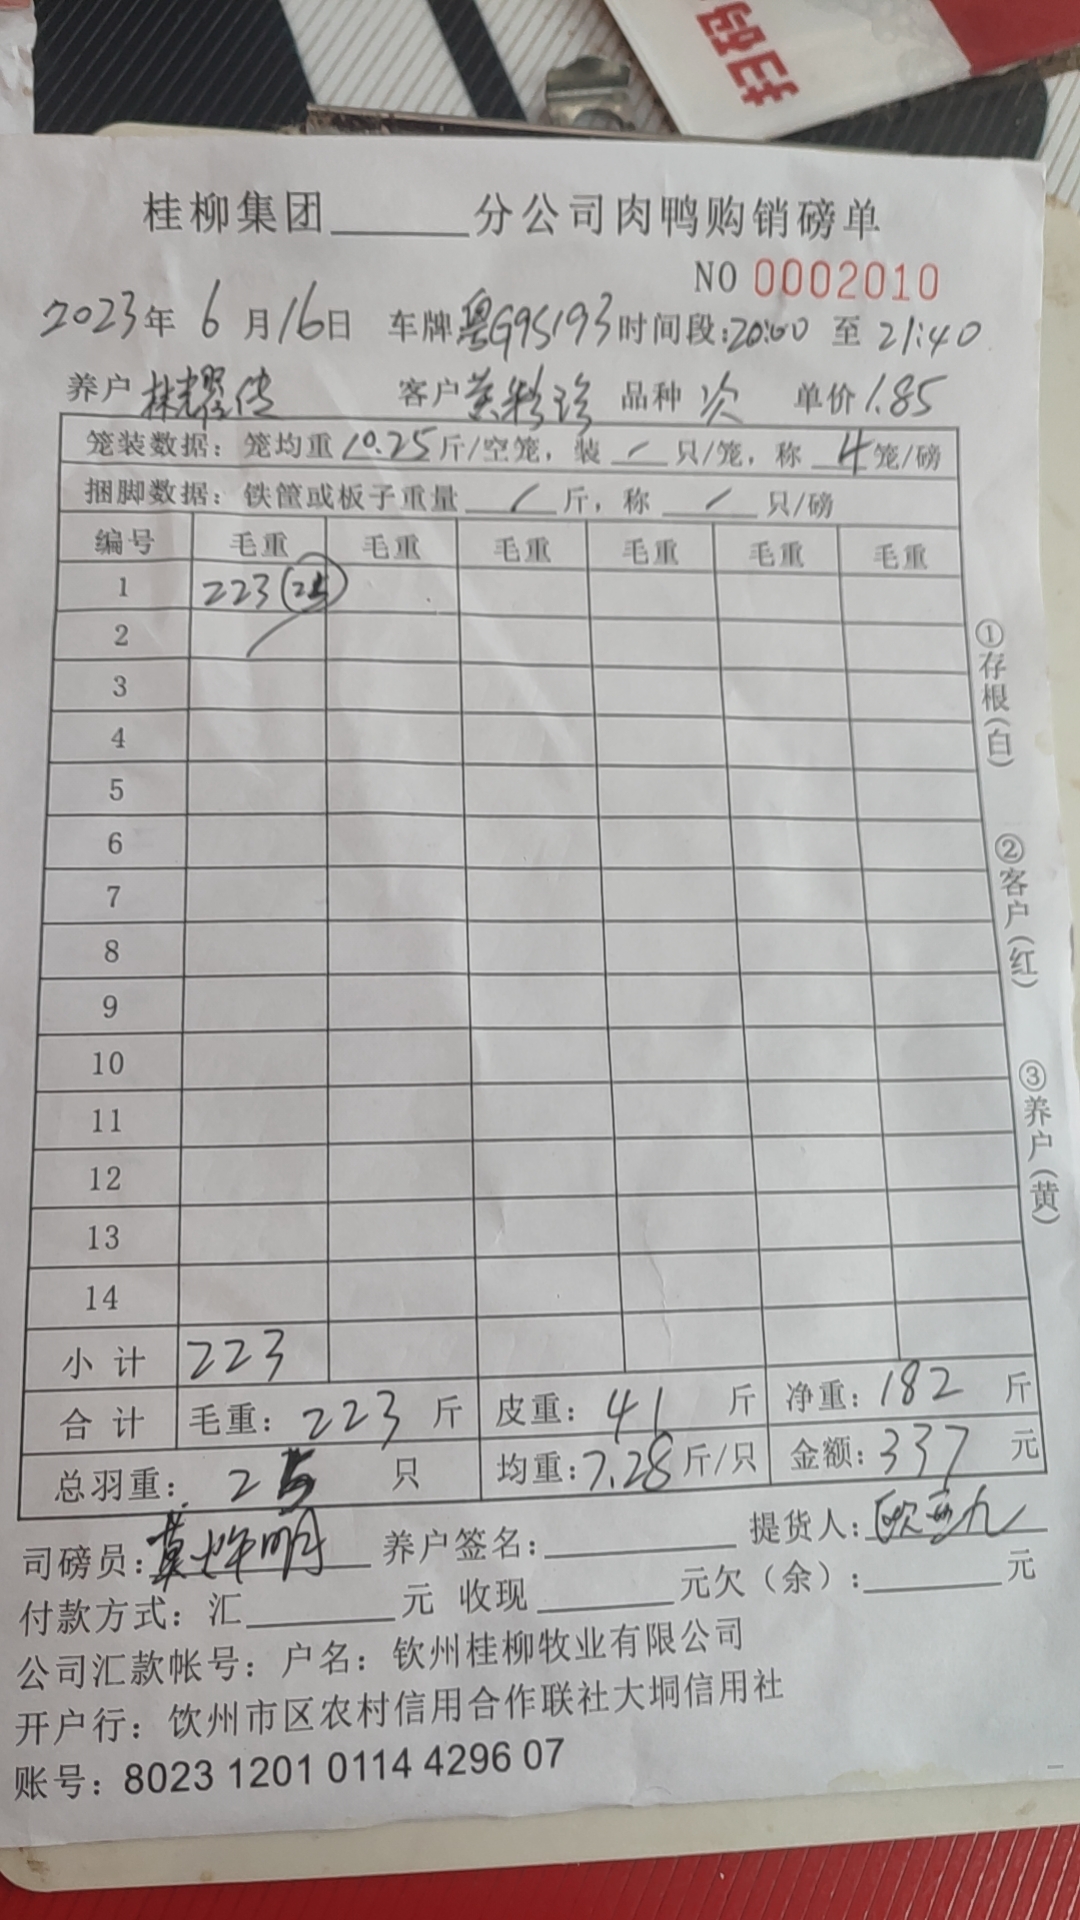 扫码
桂柳集团______分公司肉鸭购销磅单
NO 0002010
2023年 6月16日 车牌粤G95193时间段:20:00 至 21:40
养户 林耀传 客户 黄彩珍 品种 次 单价1.85
笼装数据：笼均重10.25斤/空笼，装 / 只/笼，称 4笼/磅
捆脚数据：铁筐或板子重量 / 斤，称 / 只/磅
编号 毛重 毛重 毛重 毛重 毛重 毛重
1 223(25)
2
3
4
5
6
7
8
9
10
11
12
13
14
小计 223
合计 毛重：223斤 皮重：41斤 净重：182斤
总羽重：25只 均重：7.28斤/只 金额：337元
司磅员： 养户签名： 提货人：
付款方式：汇______元 收现______元欠（余）：______元
公司汇款帐号：户名：钦州桂柳牧业有限公司
开户行：钦州市区农村信用合作联社大垌信用社
账号：8023 1201 0114 4296 07
①存根（白）
②客户（红）
③养户（黄）